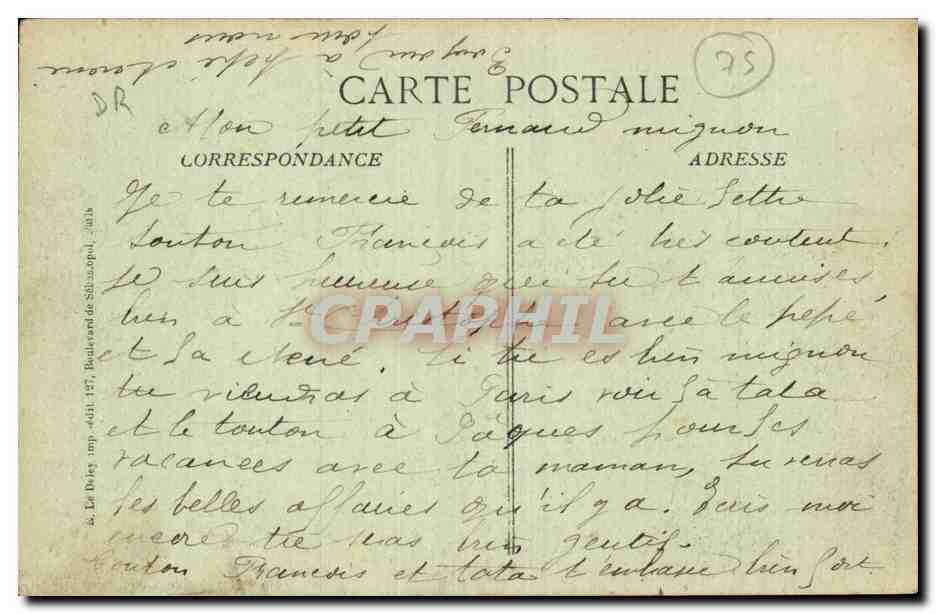 pour nous
à pépé
75
DR
CARTE POSTALE
Mon petit Fernand mignon
CORRESPONDANCE
ADRESSE
Je te remercie de ta jolie lettre
tonton François a été très content.
Je suis heureuse que tu t'amuses
bien à St Christophe avec le pépé
et la Néné. Si tu es bien mignon
tu viendras à Paris voir la tata
et le tonton à Pâques pour les
vacances avec ta maman, tu verras
les belles affaires qu'il y a. Ecris moi
encore tu seras bien gentil.
Tonton François et tata t'embrasse bien fort.
E. Le Deley imp.-édit. 127, Boulevard de Sébastopol, Paris
CPAPHIL